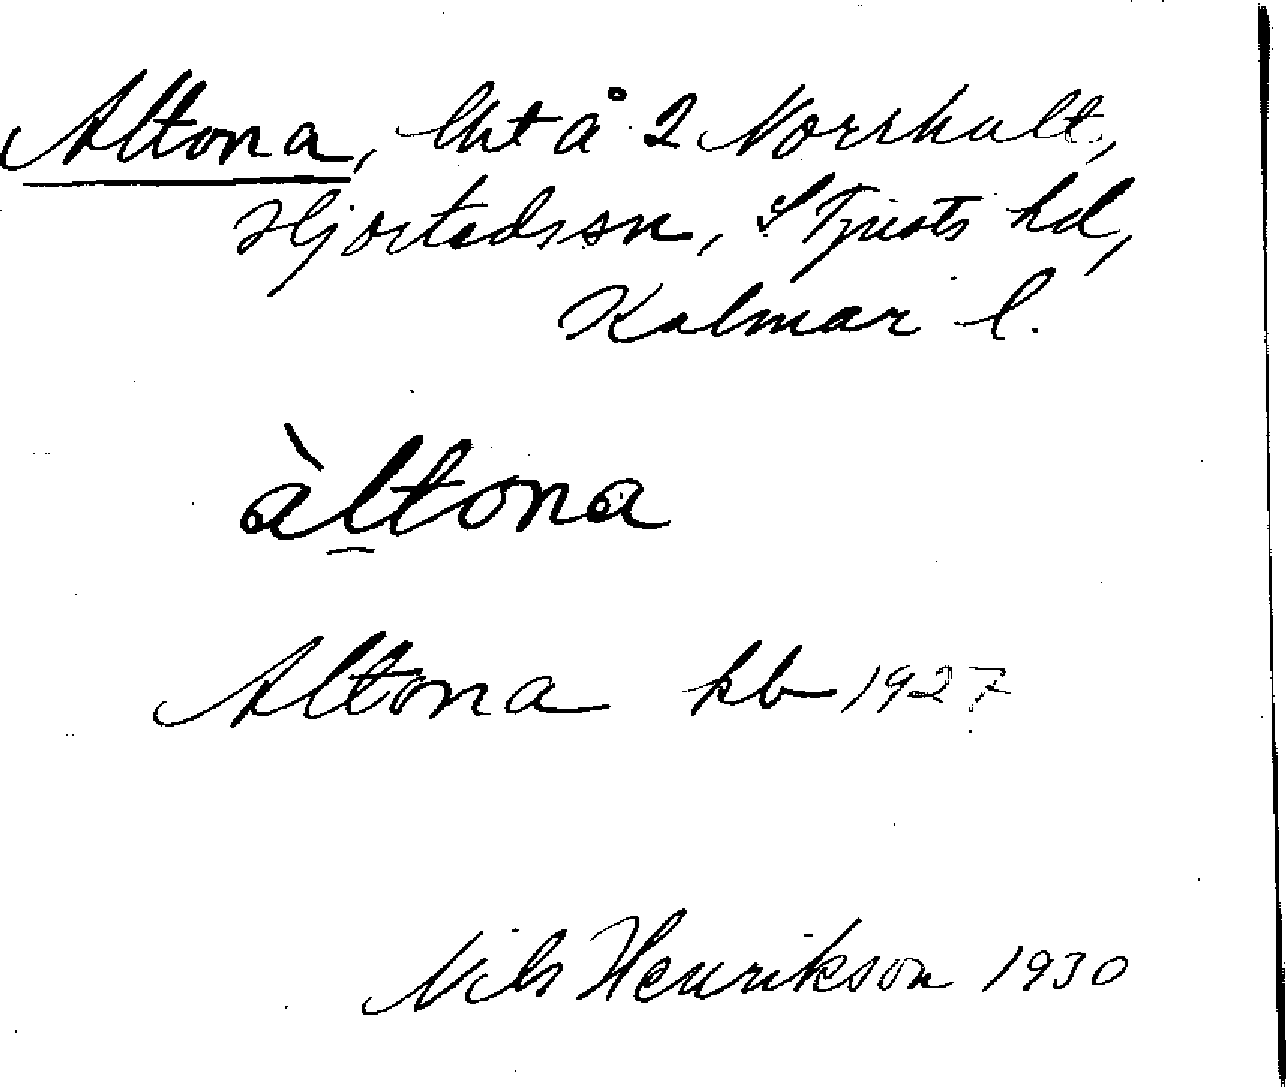 Altona, lht å 2 Norrhult,
Hjorteds sn, S Tjusts hd,
Kalmar l.
àltona
Altona kb 1927
Nils Henrikson 1930